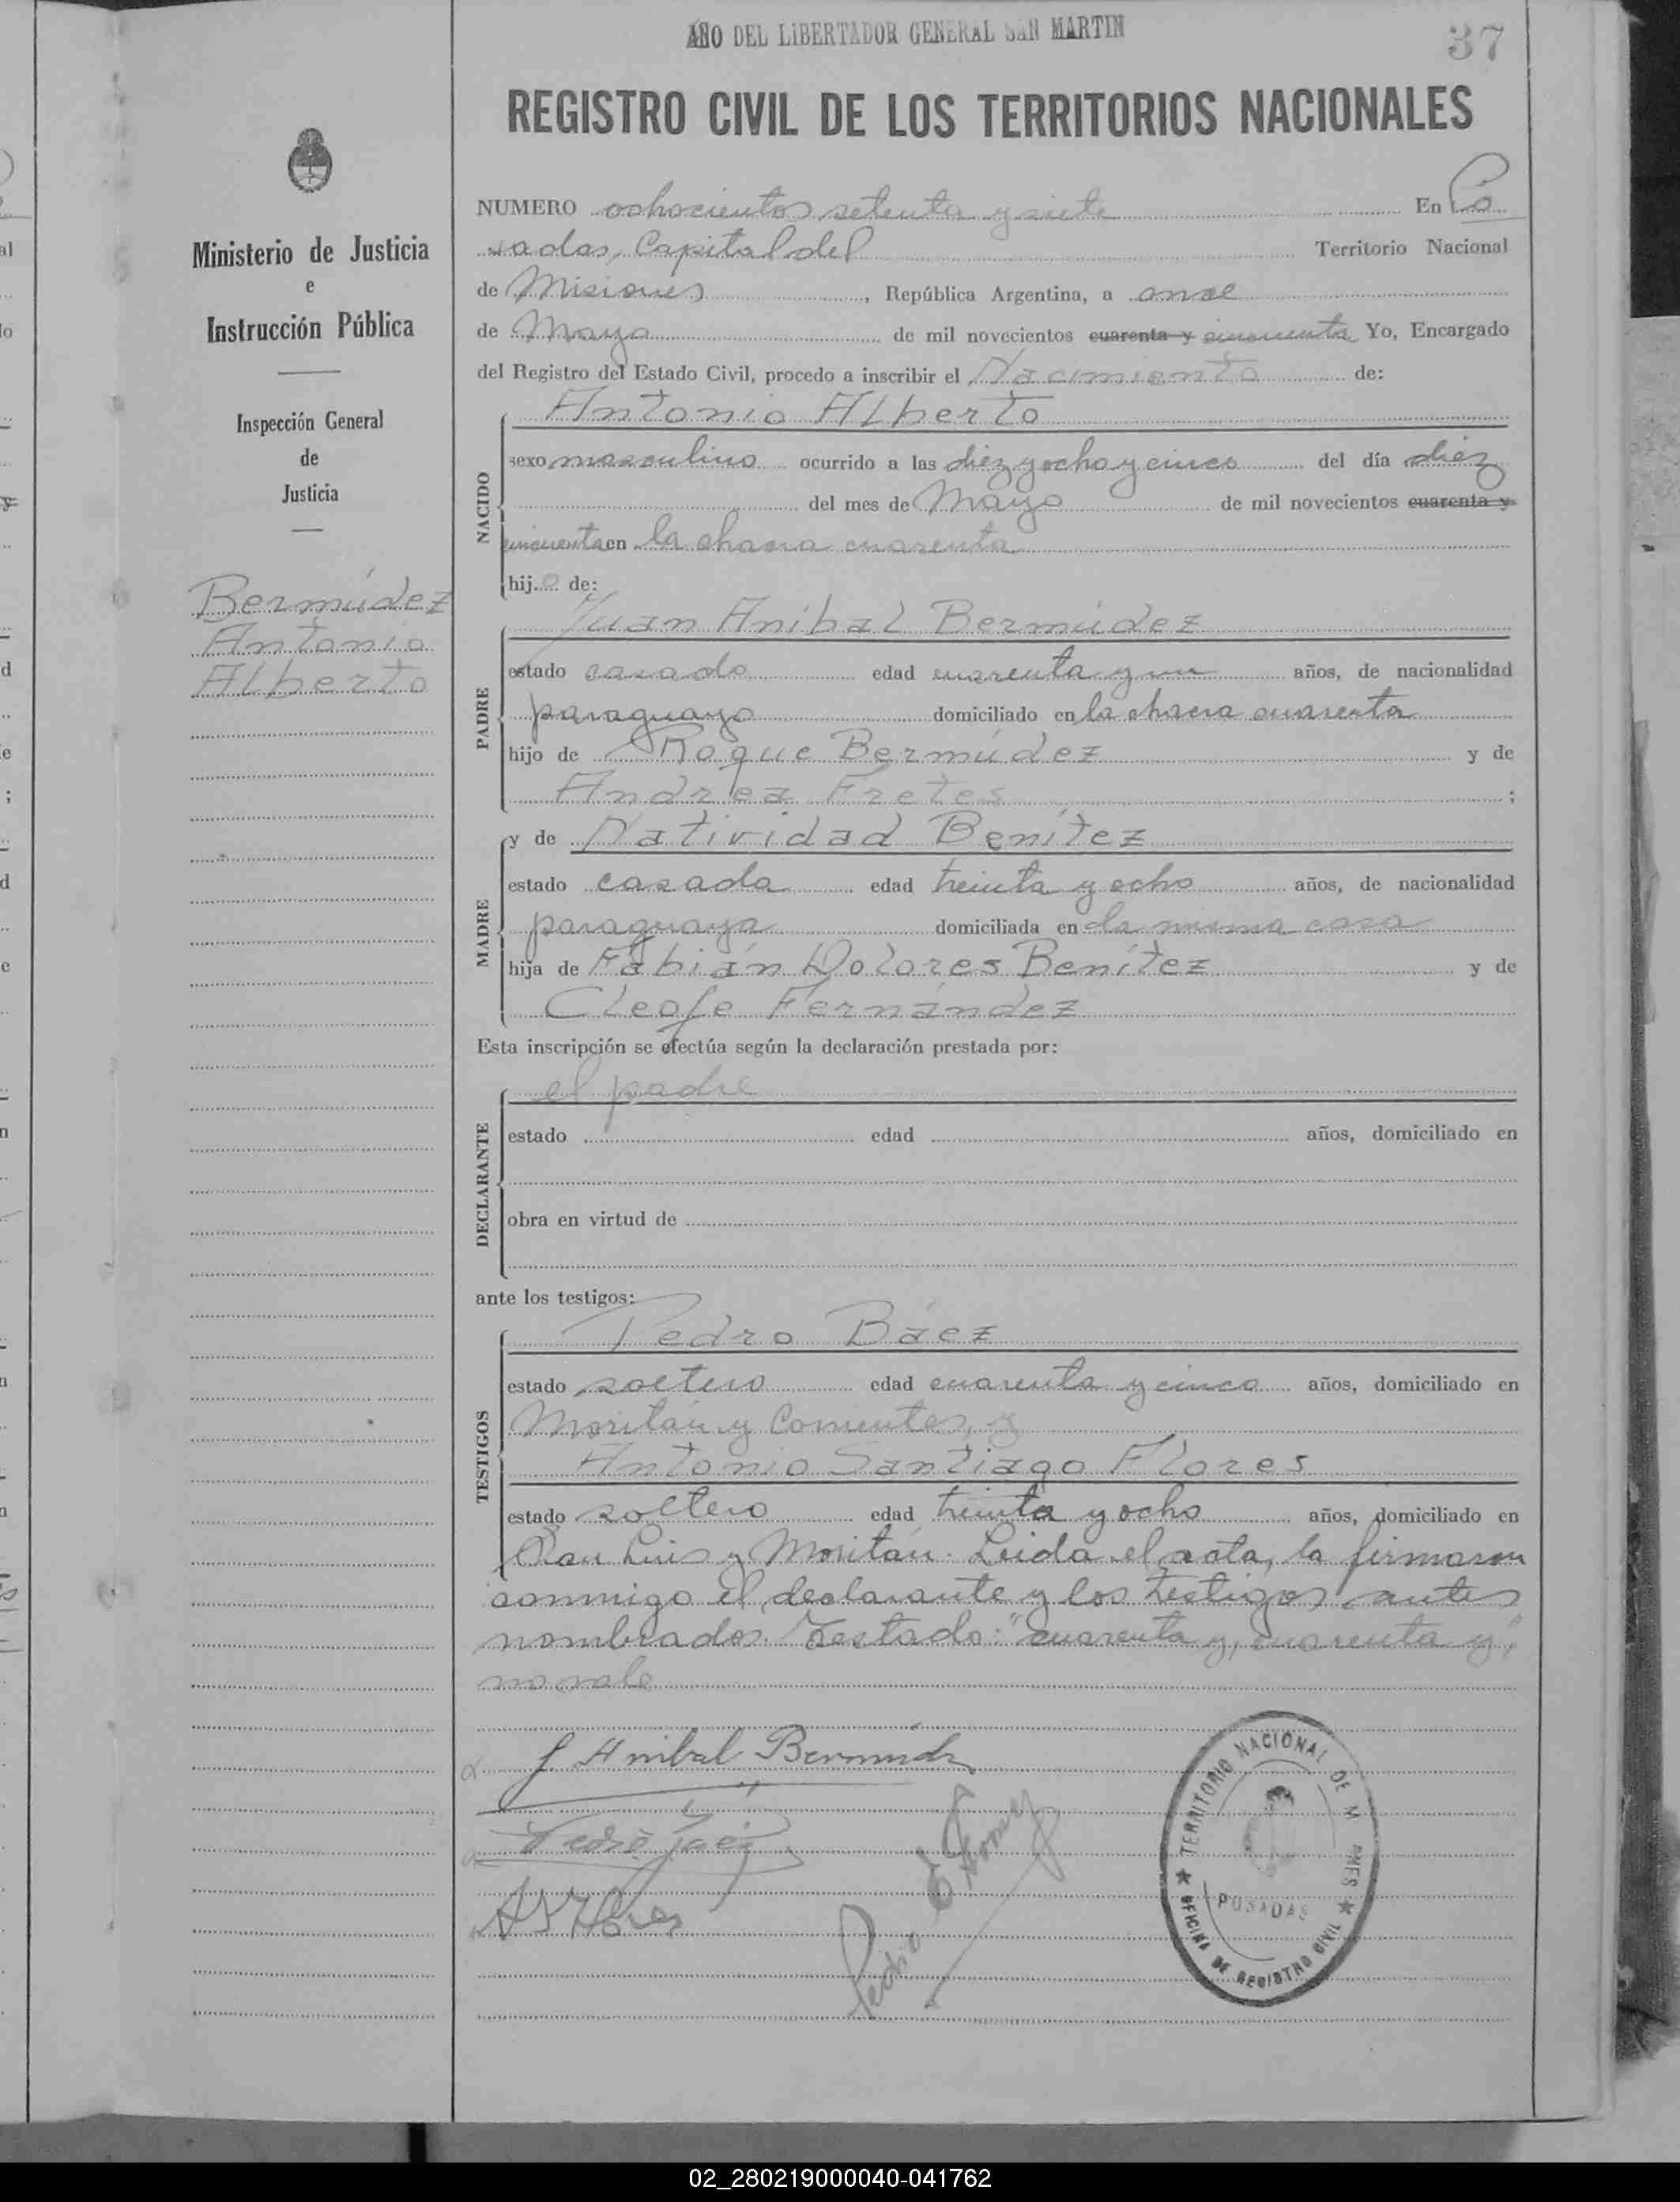 AÑO DEL LIBERTADOR GENERAL SAN MARTIN
37
REGISTRO CIVIL DE LOS TERRITORIOS NACIONALES
Ministerio de Justicia
e
Instrucción Pública
Inspección General
de
Justicia
Bermúdez
Antonio
Alberto
NUMERO ochocientos setenta y siete En Po
sadas, Capital del Territorio Nacional
de Misiones, República Argentina, a once
de Mayo de mil novecientos cuarenta y cincuenta Yo, Encargado
del Registro del Estado Civil, procedo a inscribir el Nacimiento de:
Antonio Alberto
NACIDO
sexo masculino ocurrido a las diez y ocho y cinco del día diez
del mes de Mayo de mil novecientos cuarenta y
cincuenta en la chacra cuarenta
hijo de:
Juan Aníbal Bermúdez
PADRE
estado casado edad cuarenta y un años, de nacionalidad
paraguayo domiciliado en la chacra cuarenta
hijo de Roque Bermúdez y de
Andrea Fretes ;
y de Natividad Benítez
MADRE
estado casada edad treinta y ocho años, de nacionalidad
paraguaya domiciliada en la misma casa
hija de Fabián Dolores Benítez y de
Cleofe Fernández
Esta inscripción se efectúa según la declaración prestada por:
el padre
DECLARANTE
estado edad años, domiciliado en
obra en virtud de
ante los testigos:
Pedro Báez
TESTIGOS
estado soltero edad cuarenta y cinco años, domiciliado en
Moritán y Corrientes, y
Antonio Santiago Flores
estado soltero edad treinta y ocho años, domiciliado en
San Luis y Moritán. Leída el acta, la firmaron
conmigo el declarante y los testigos antes
nombrados. Testado: "cuarenta y, cuarenta y",
no vale
J. Anibal Bermúdez
Pedro Báez
A S Flores
Pedro
TERRITORIO NACIONAL DE M NES
POSADAS
OFICINA DE REGISTRO CIVIL
02_280219000040-041762